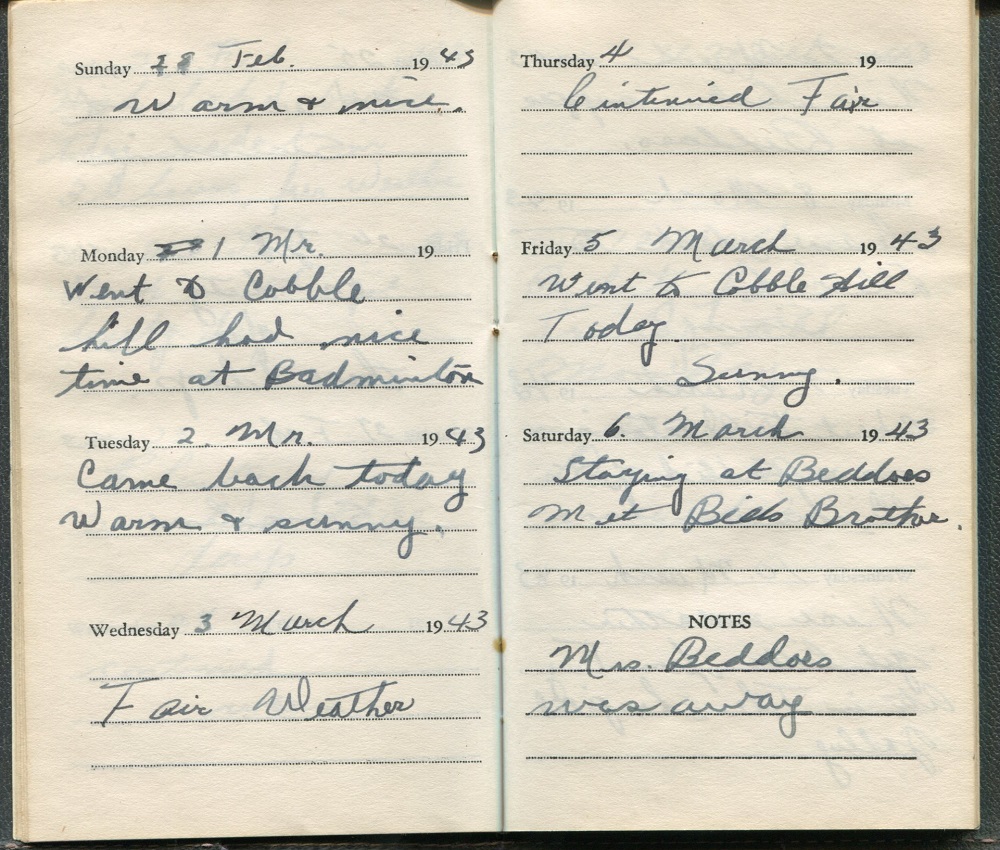 Sunday 28 Feb. 1943
Warm & nice.
Monday 1 Mr. 19
Went to Cobble
hill had nice
time at Badminton
Tuesday 2. Mr. 1943
Came back today
Warm & sunny.
Wednesday 3 March 1943
Fair Weather
Thursday 4 19
Cintinuied Fair
Friday 5 March 1943
Went to Cobble Hill
Today.
Sunny.
Saturday 6. March 1943
Staying at Beddoes
Met Bids Brother.
NOTES
Mrs. Beddoes
was away